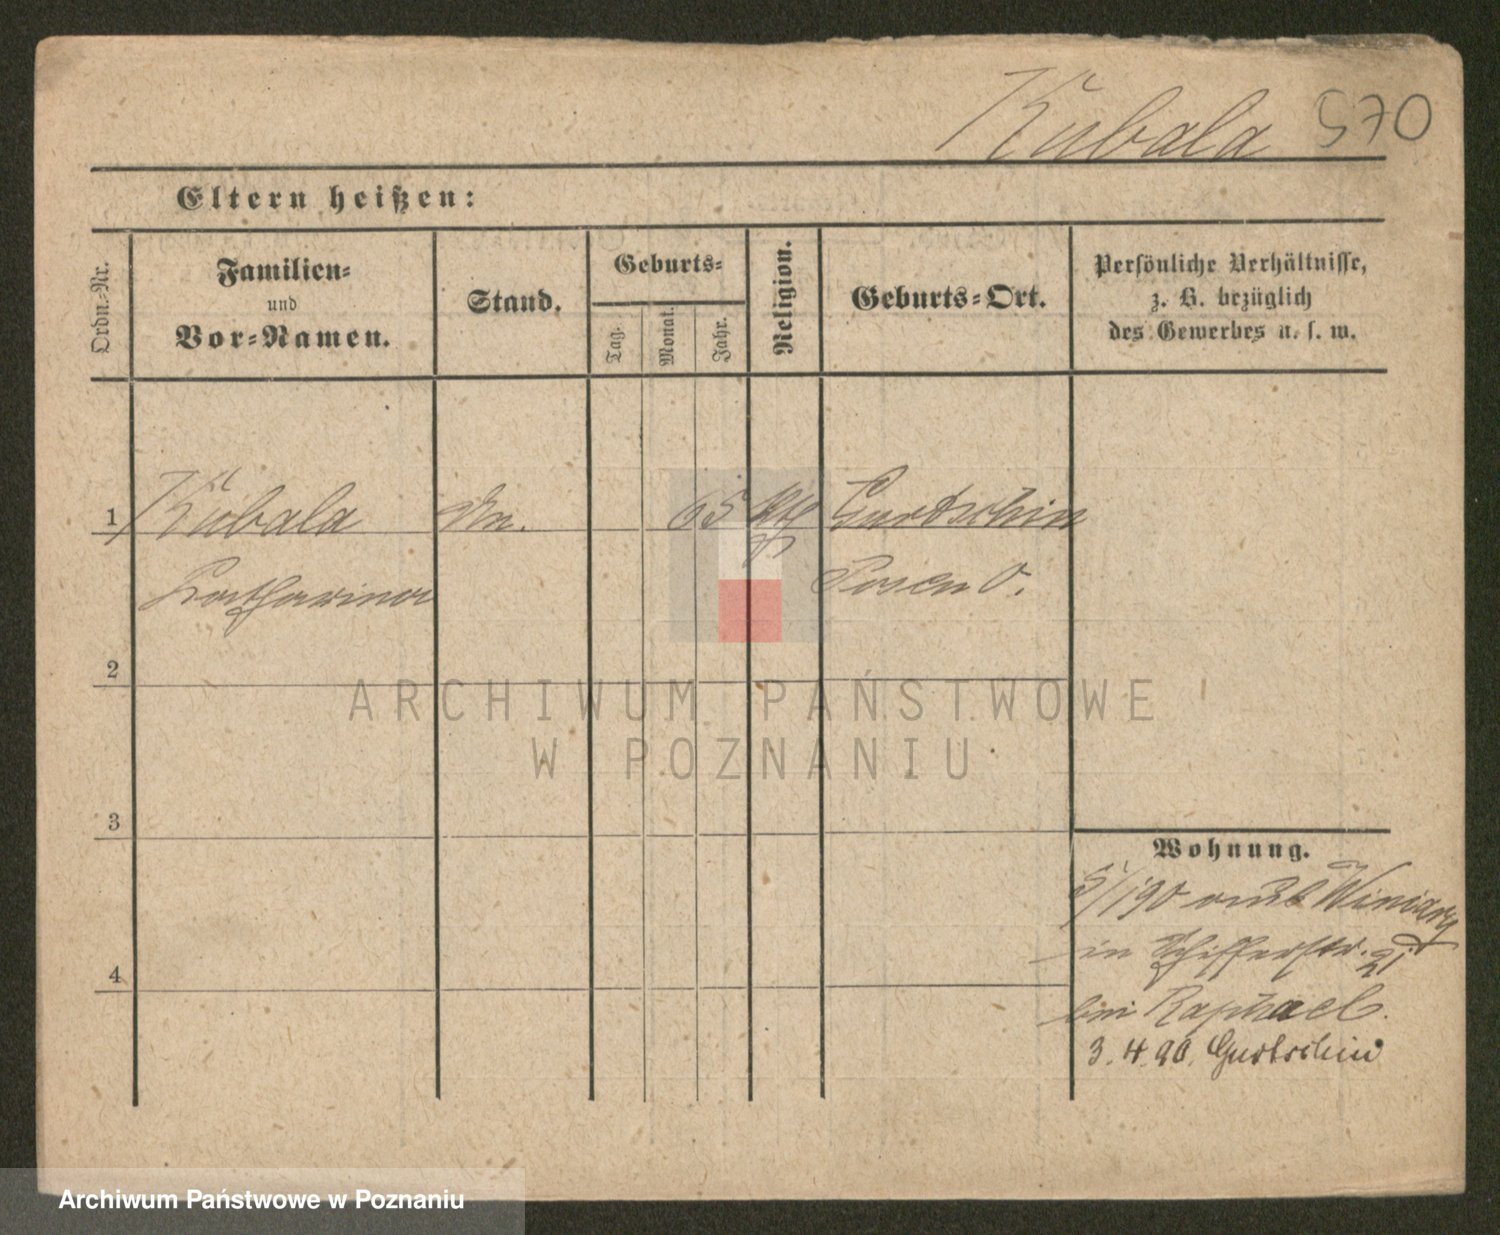 Kubala 570
Eltern heißen:
Ordn.-Nr.
Familien-
und
Vor-Namen.
Stand.
Geburts-
Tag.
Monat.
Jahr.
Religion.
Geburts-Ort.
Persönliche Verhältnisse,
z. B. bezüglich
des Gewerbes u. s. w.
1 Kubala 65 kth Gurtschin
Katharina Posen O.
2
3
4
Wohnung.
5/1 90 Winiary
in Schifferstr. 21
bei Raphael.
3. 4. 90. Gurtschin
ARCHIWUM PAŃSTWOWE
W POZNANIU
Archiwum Państwowe w Poznaniu